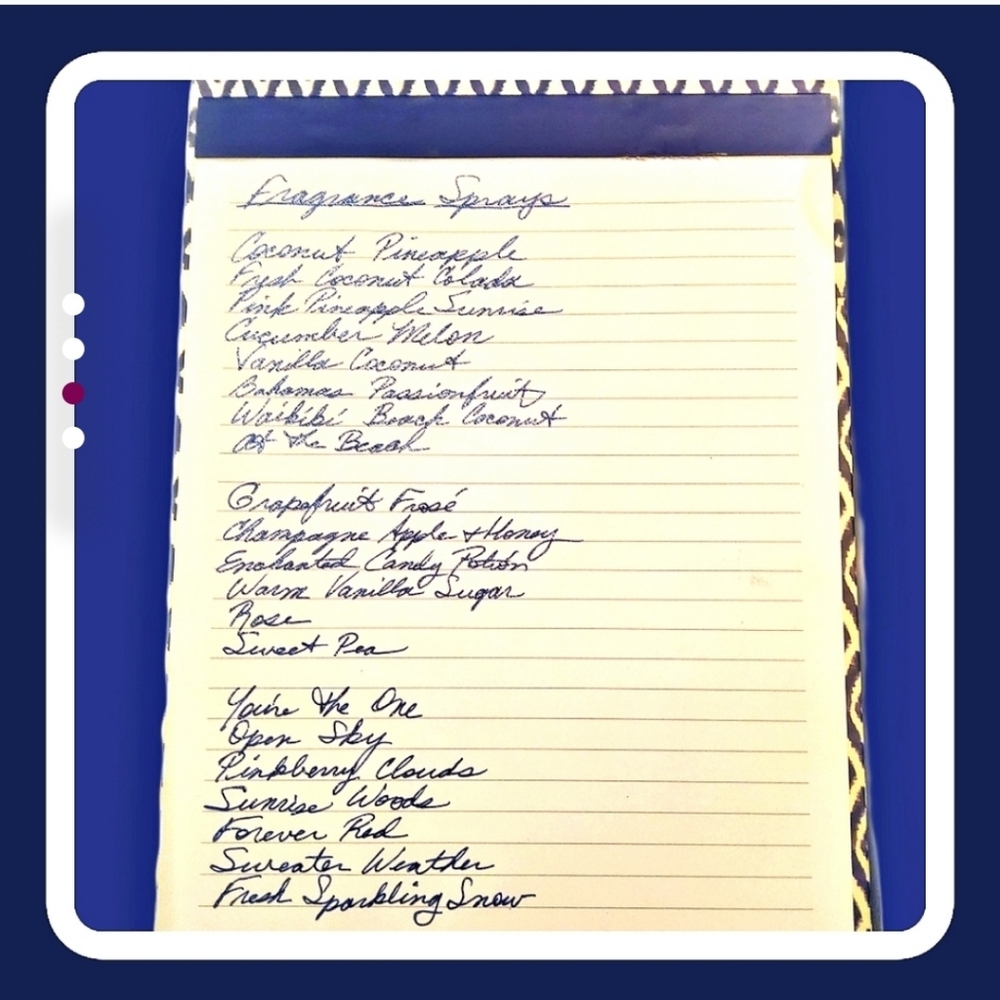 Fragrance Sprays
Coconut Pineapple
Fresh Coconut Colada
Pink Pineapple Sunrise
Cucumber Melon
Vanilla Coconut
Bahamas Passionfruit
Waikiki Beach Coconut
At the Beach
Grapefruit Frosé
Champagne Apple + Honey
Enchanted Candy Potion
Warm Vanilla Sugar
Rose
Sweet Pea
You're the One
Open Sky
Pinkberry Clouds
Sunrise Woods
Forever Red
Sweater Weather
Fresh Sparkling Snow